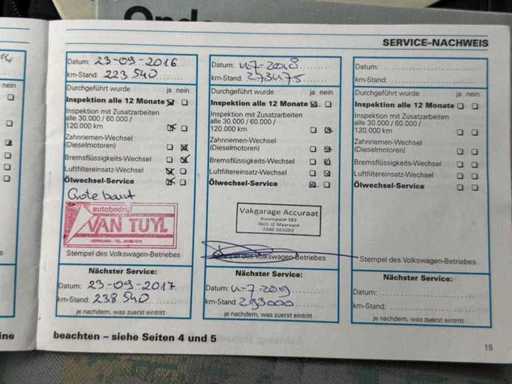 SERVICE–NACHWEIS
Datum: 23-09-2016
km-Stand: 223 540
Durchgeführt wurde ja nein
Inspektion alle 12 Monate
Inspektion mit Zusatzarbeiten
alle 30.000 / 60.000 /
120.000 km
Zahnriemen-Wechsel
(Dieselmotoren)
Bremsflüssigkeits-Wechsel
Luftfiltereinsatz-Wechsel
Ölwechsel-Service
Grote beurt
autobedrijf
VAN TUYL
Stempel des Volkswagen-Betriebes
Nächster Service:
Datum: 23-09-2017
km-Stand: 238 540
je nachdem, was zuerst eintritt
Datum: 4-7-2018
km-Stand: 273475
Durchgeführt wurde ja nein
Inspektion alle 12 Monate
Inspektion mit Zusatzarbeiten
alle 30.000 / 60.000 /
120.000 km
Zahnriemen-Wechsel
(Dieselmotoren)
Bremsflüssigkeits-Wechsel
Luftfiltereinsatz-Wechsel
Ölwechsel-Service
Vakgarage Accuraat
des Volkswagen-Betriebes
Nächster Service:
Datum: 4-7-2019
km-Stand: 293000
je nachdem, was zuerst eintritt
Datum:
km-Stand:
Durchgeführt wurde ja nein
Inspektion alle 12 Monate
Inspektion mit Zusatzarbeiten
alle 30.000 / 60.000 /
120.000 km
Zahnriemen-Wechsel
(Dieselmotoren)
Bremsflüssigkeits-Wechsel
Luftfiltereinsatz-Wechsel
Ölwechsel-Service
Stempel des Volkswagen-Betriebes
Nächster Service:
Datum:
km-Stand:
je nachdem, was zuerst eintritt
beachten – siehe Seiten 4 und 5
15